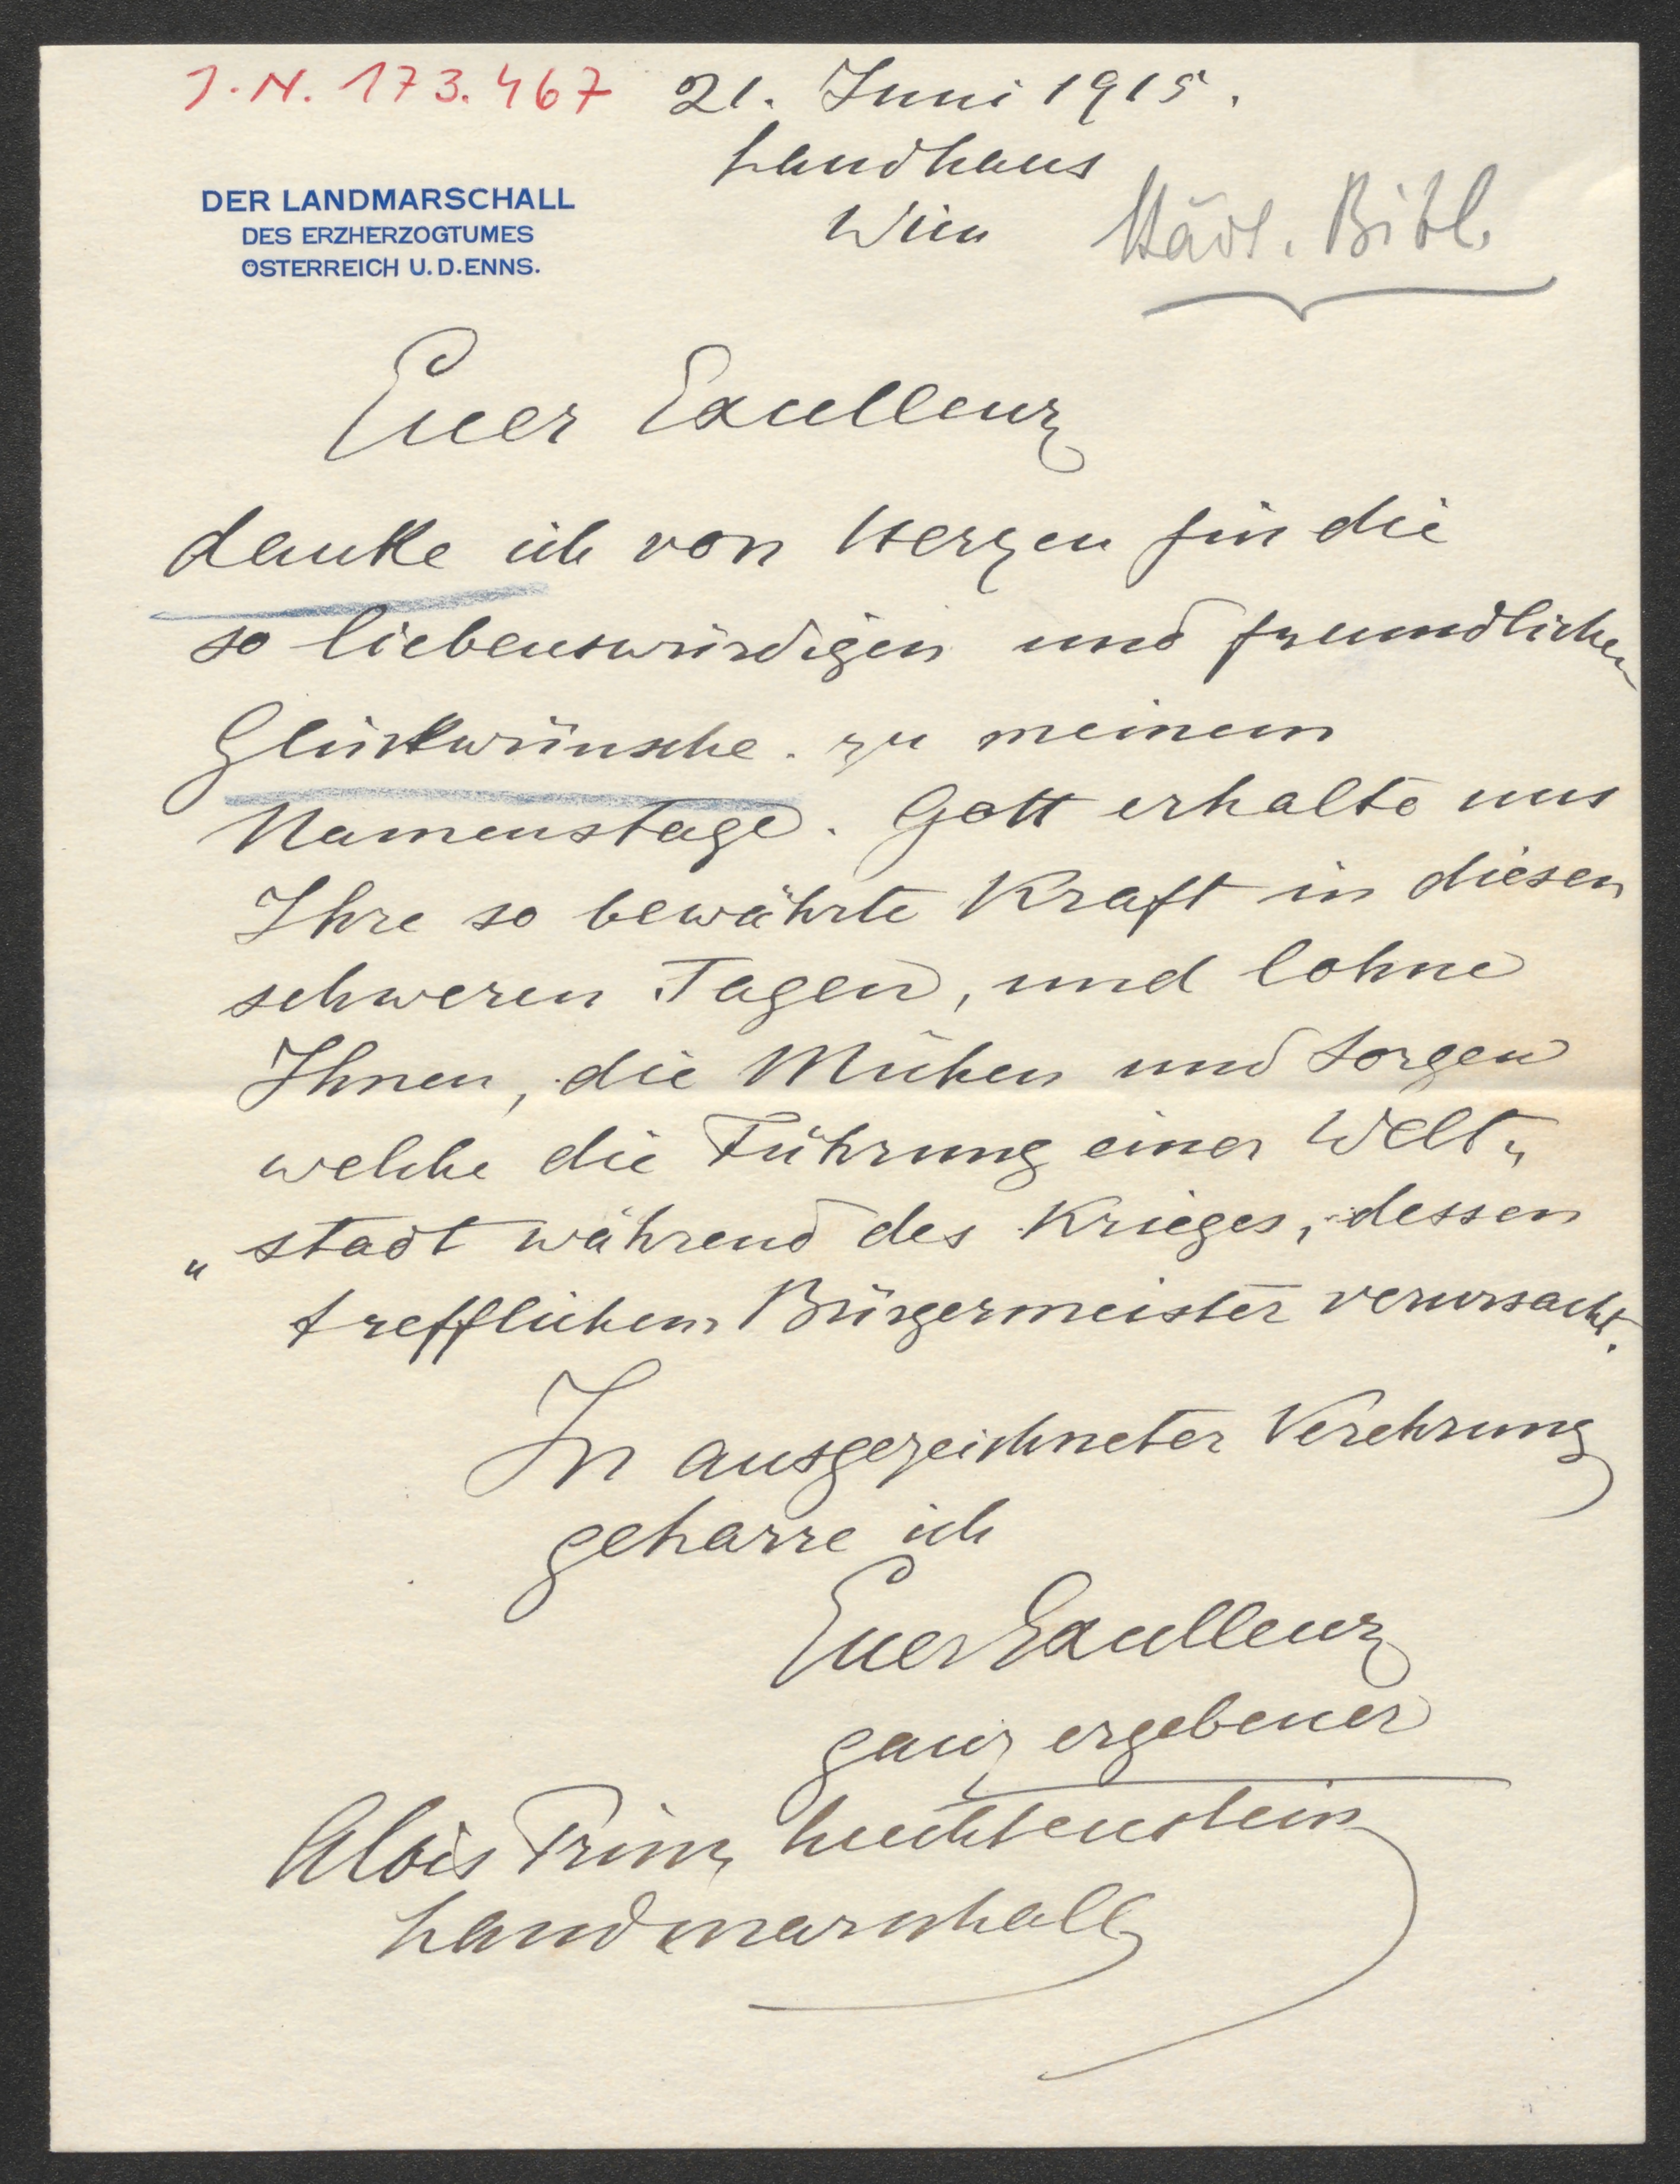 J.N. 173.467
21. Juni 1915.
Landhaus
Wien
Städt. Bibl.
DER LANDMARSCHALL
DES ERZHERZOGTUMES
ÖSTERREICH U. D. ENNS.
Euer Excellenz
danke ich von Herzen für die
so liebenswürdigen und freundlichen
Glückwünsche zu meinem
Namenstage. Gott erhalte uns
Ihre so bewährte Kraft in diesen
schweren Tagen, und lohne
Ihnen, die Mühen und Sorgen
welche die Führung einer Welt„
„stadt während des Krieges, dessen
trefflichem Bürgermeister verursacht.
In ausgezeichneter Verehrung
geharre ich
Euer Excellenz
ganz ergebener
Alois Prinz Liechtenstein
Landmarschall